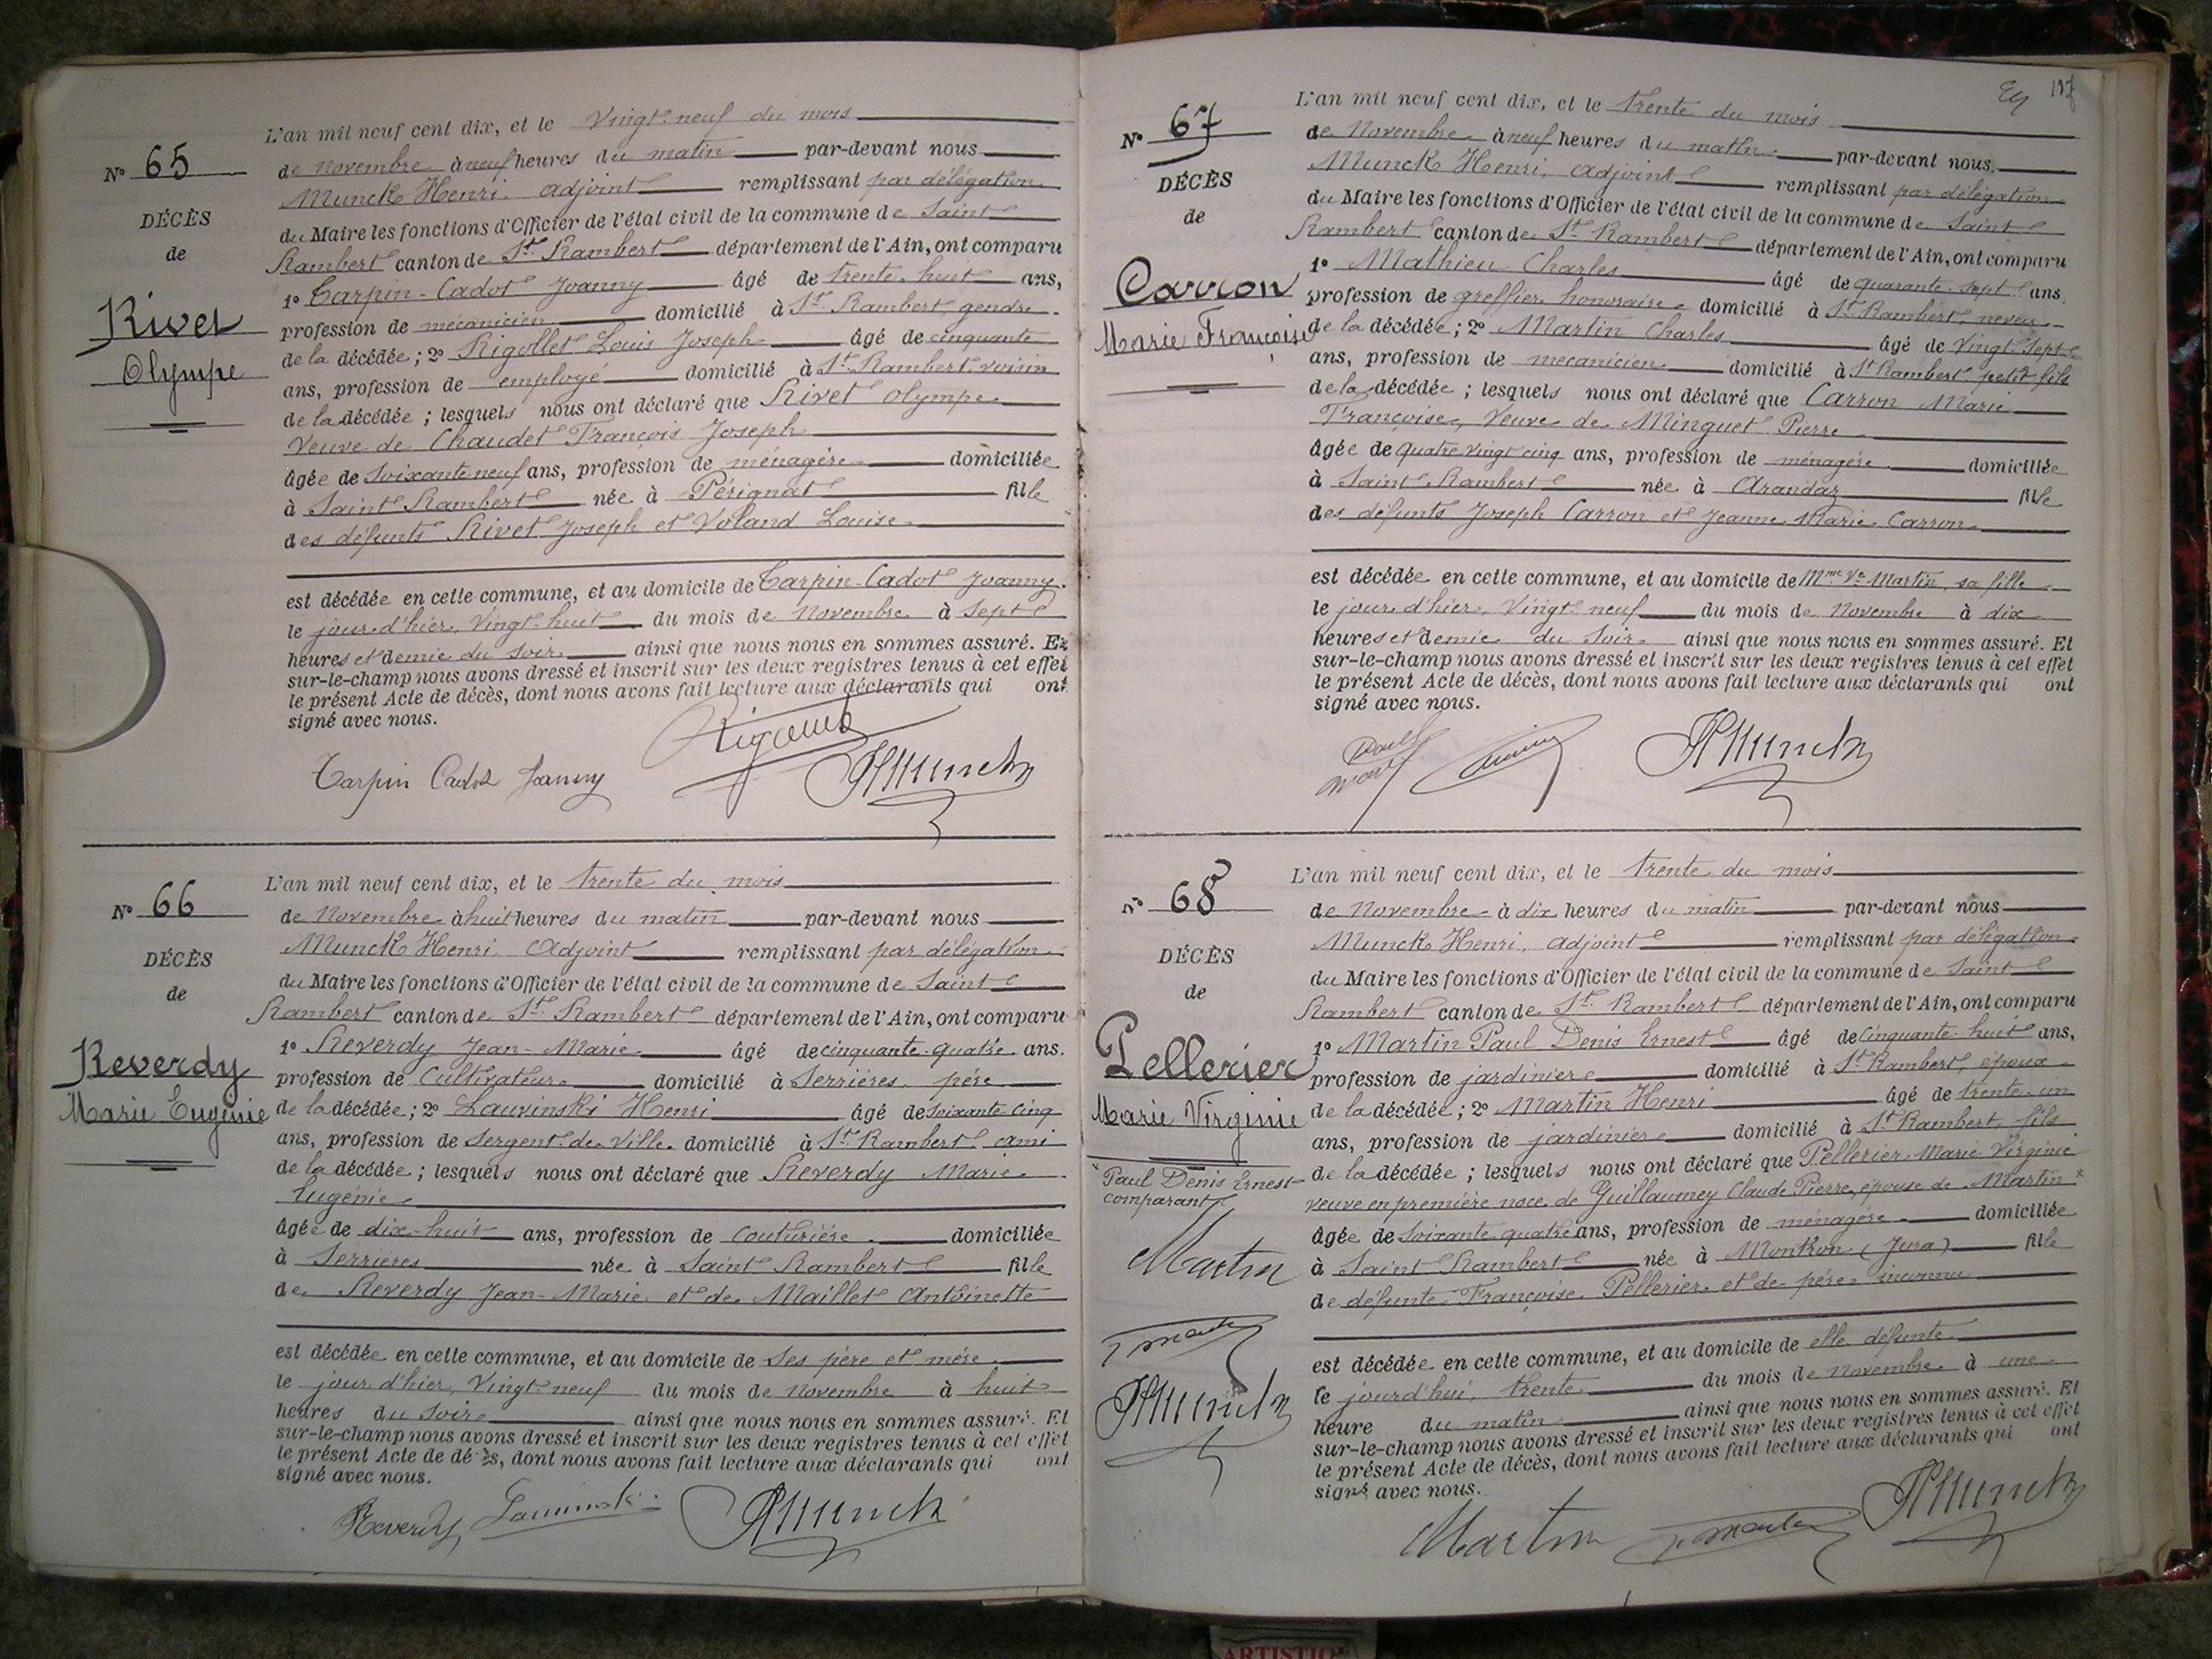 L'an mil neuf cent dix, et le vingt-neuf du mois
N° 65
de Novembre à neuf heures du matin par-devant nous
Munck Henri, adjoint remplissant par délégation
DÉCÈS
du Maire les fonctions d'Officier de l'état civil de la commune de Saint
de
Rambert canton de St. Rambert département de l'Ain, ont comparu
1° Carpin-Cadot Joanny âgé de trente-huit ans,
Rivet
profession de mécanicien domicilié à St. Rambert, gendre
de la décédée ; 2° Rigollet Louis Joseph âgé de cinquante
Olympe
ans, profession de employé domicilié à St. Rambert, voisin
de la décédée ; lesquels nous ont déclaré que Rivet Olympe
Veuve de Chaudet François Joseph
âgée de soixante neuf ans, profession de ménagère domiciliée
à Saint Rambert née à Pérignat fille
des défunts Rivet Joseph et Voland Louise
est décédée en cette commune, et au domicile de Carpin-Cadot Joanny.
le jour d'hier, vingt-huit du mois de Novembre à sept
heures et demie du soir ainsi que nous nous en sommes assuré. Et
sur-le-champ nous avons dressé et inscrit sur les deux registres tenus à cet effet
le présent Acte de décès, dont nous avons fait lecture aux déclarants qui ont
signé avec nous.
Carpin Cadot Joanny
HMunck
L'an mil neuf cent dix, et le trente du mois
N° 66
de Novembre à huit heures du matin par-devant nous
Munck Henri, adjoint remplissant par délégation
DÉCÈS
du Maire les fonctions d'Officier de l'état civil de la commune de Saint
de
Rambert canton de St. Rambert département de l'Ain, ont comparu
1° Reverdy Jean-Marie âgé de cinquante-quatre ans.
Reverdy
profession de Cultivateur domicilié à Serrières, père
Marie Eugénie
de la décédée ; 2° Lauvinski Henri âgé de soixante-cinq
ans, profession de Sergent de Ville domicilié à St. Rambert ami
de la décédée ; lesquels nous ont déclaré que Reverdy Marie
Eugénie
âgée de dix-huit ans, profession de couturière domiciliée
à Serrières née à Saint Rambert fille
de Reverdy Jean-Marie et de Maillet Antoinette
est décédée en cette commune, et au domicile de ses père et mère
le jour d'hier, vingt-neuf du mois de Novembre à huit
heures du soir ainsi que nous nous en sommes assuré. Et
sur-le-champ nous avons dressé et inscrit sur les deux registres tenus à cet effet
le présent Acte de décès, dont nous avons fait lecture aux déclarants qui ont
signé avec nous.
Reverdy
HMunck
197
L'an mil neuf cent dix, et le trente du mois
N° 67
de Novembre à neuf heures du matin par-devant nous
Munck Henri, adjoint remplissant par délégation
DÉCÈS
du Maire les fonctions d'Officier de l'état civil de la commune de Saint
de
Rambert canton de St. Rambert département de l'Ain, ont comparu
1° Mathieu Charles âgé de quarante-sept ans.
Carron
profession de greffier honoraire domicilié à St. Rambert, neveu
Marie Françoise
de la décédée ; 2° Martin Charles âgé de vingt-sept
ans, profession de mécanicien domicilié à St Rambert petit fils
de la décédée ; lesquels nous ont déclaré que Carron Marie
Françoise, Veuve de Minguet Pierre
âgée de quatre vingt cinq ans, profession de ménagère domiciliée
à Saint Rambert née à Arandaz fille
des défunts Joseph Carron et Jeanne Marie Carron
est décédée en cette commune, et au domicile de Mme Ve Martin, sa fille
le jour d'hier, vingt-neuf du mois de Novembre à dix
heures et demie du soir ainsi que nous nous en sommes assuré. Et
sur-le-champ nous avons dressé et inscrit sur les deux registres tenus à cet effet
le présent Acte de décès, dont nous avons fait lecture aux déclarants qui ont
signé avec nous.
HMunck
L'an mil neuf cent dix, et le trente du mois
N° 68
de Novembre à dix heures du matin par-devant nous
Munck Henri, adjoint remplissant par délégation
DÉCÈS
du Maire les fonctions d'Officier de l'état civil de la commune de Saint
de
Rambert canton de St. Rambert département de l'Ain, ont comparu
1° Martin Paul Denis Ernest âgé de cinquante-huit ans,
Pellerier
profession de jardinier domicilié à St. Rambert, époux
Marie Virginie
de la décédée ; 2° Martin Henri âgé de trente-un
ans, profession de jardinier domicilié à St Rambert, fils
de la décédée ; lesquels nous ont déclaré que Pellerier Marie Virginie
* Paul Denis Ernest
comparant
veuve en première noce de Guillaumey Claude Pierre, épouse de Martin *
âgée de soixante quatre ans, profession de ménagère domiciliée
Martin
à Saint Rambert née à Montron (Jura) fille
de défunte Françoise Pellerier et de père inconnu
est décédée en cette commune, et au domicile de elle défunte
HMunck
le jourd'hui, trente du mois de Novembre à une
heure du matin ainsi que nous nous en sommes assuré. Et
sur-le-champ nous avons dressé et inscrit sur les deux registres tenus à cet effet
le présent Acte de décès, dont nous avons fait lecture aux déclarants qui ont
signé avec nous.
Martin
HMunck